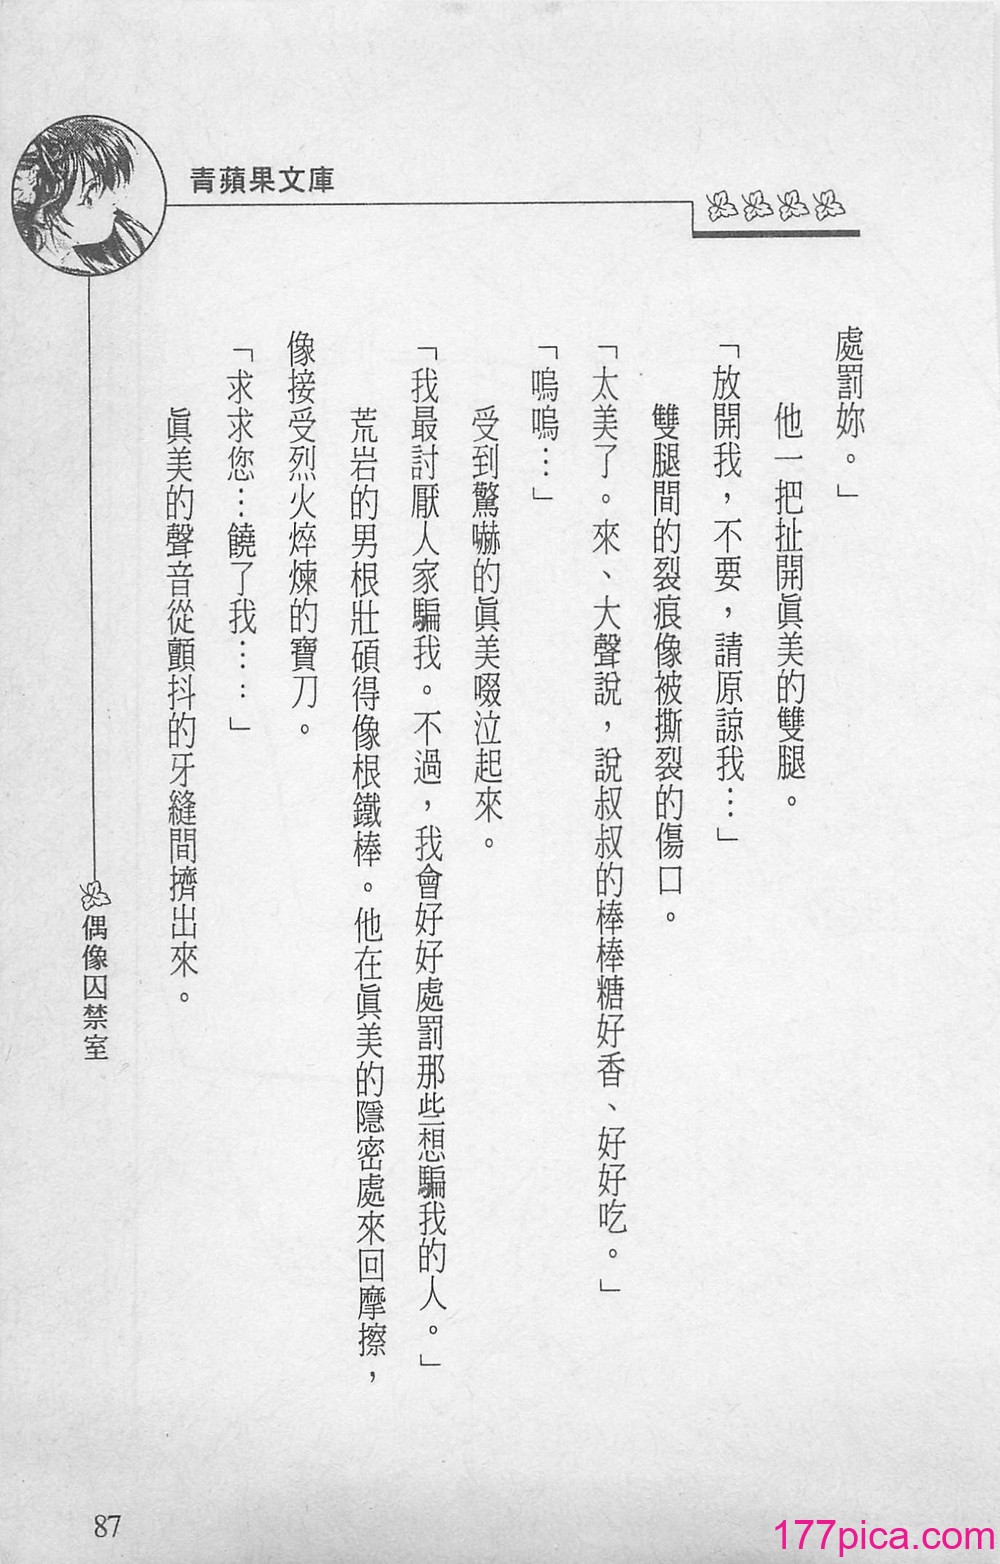 青蘋果文庫
處罰妳。」
他一把扯開眞美的雙腿。
「放開我，不要，請原諒我…」
雙腿間的裂痕像被撕裂的傷口。
「太美了。來、大聲說，說叔叔的棒棒糖好香、好好吃。」
「嗚嗚…」
受到驚嚇的眞美啜泣起來。
「我最討厭人家騙我。不過，我會好好處罰那些想騙我的人。」
荒岩的男根壯碩得像根鐵棒。他在眞美的隱密處來回摩擦，
像接受烈火焠煉的寶刀。
「求求您…饒了我……」
眞美的聲音從顫抖的牙縫間擠出來。
偶像囚禁室
87
177pica.com